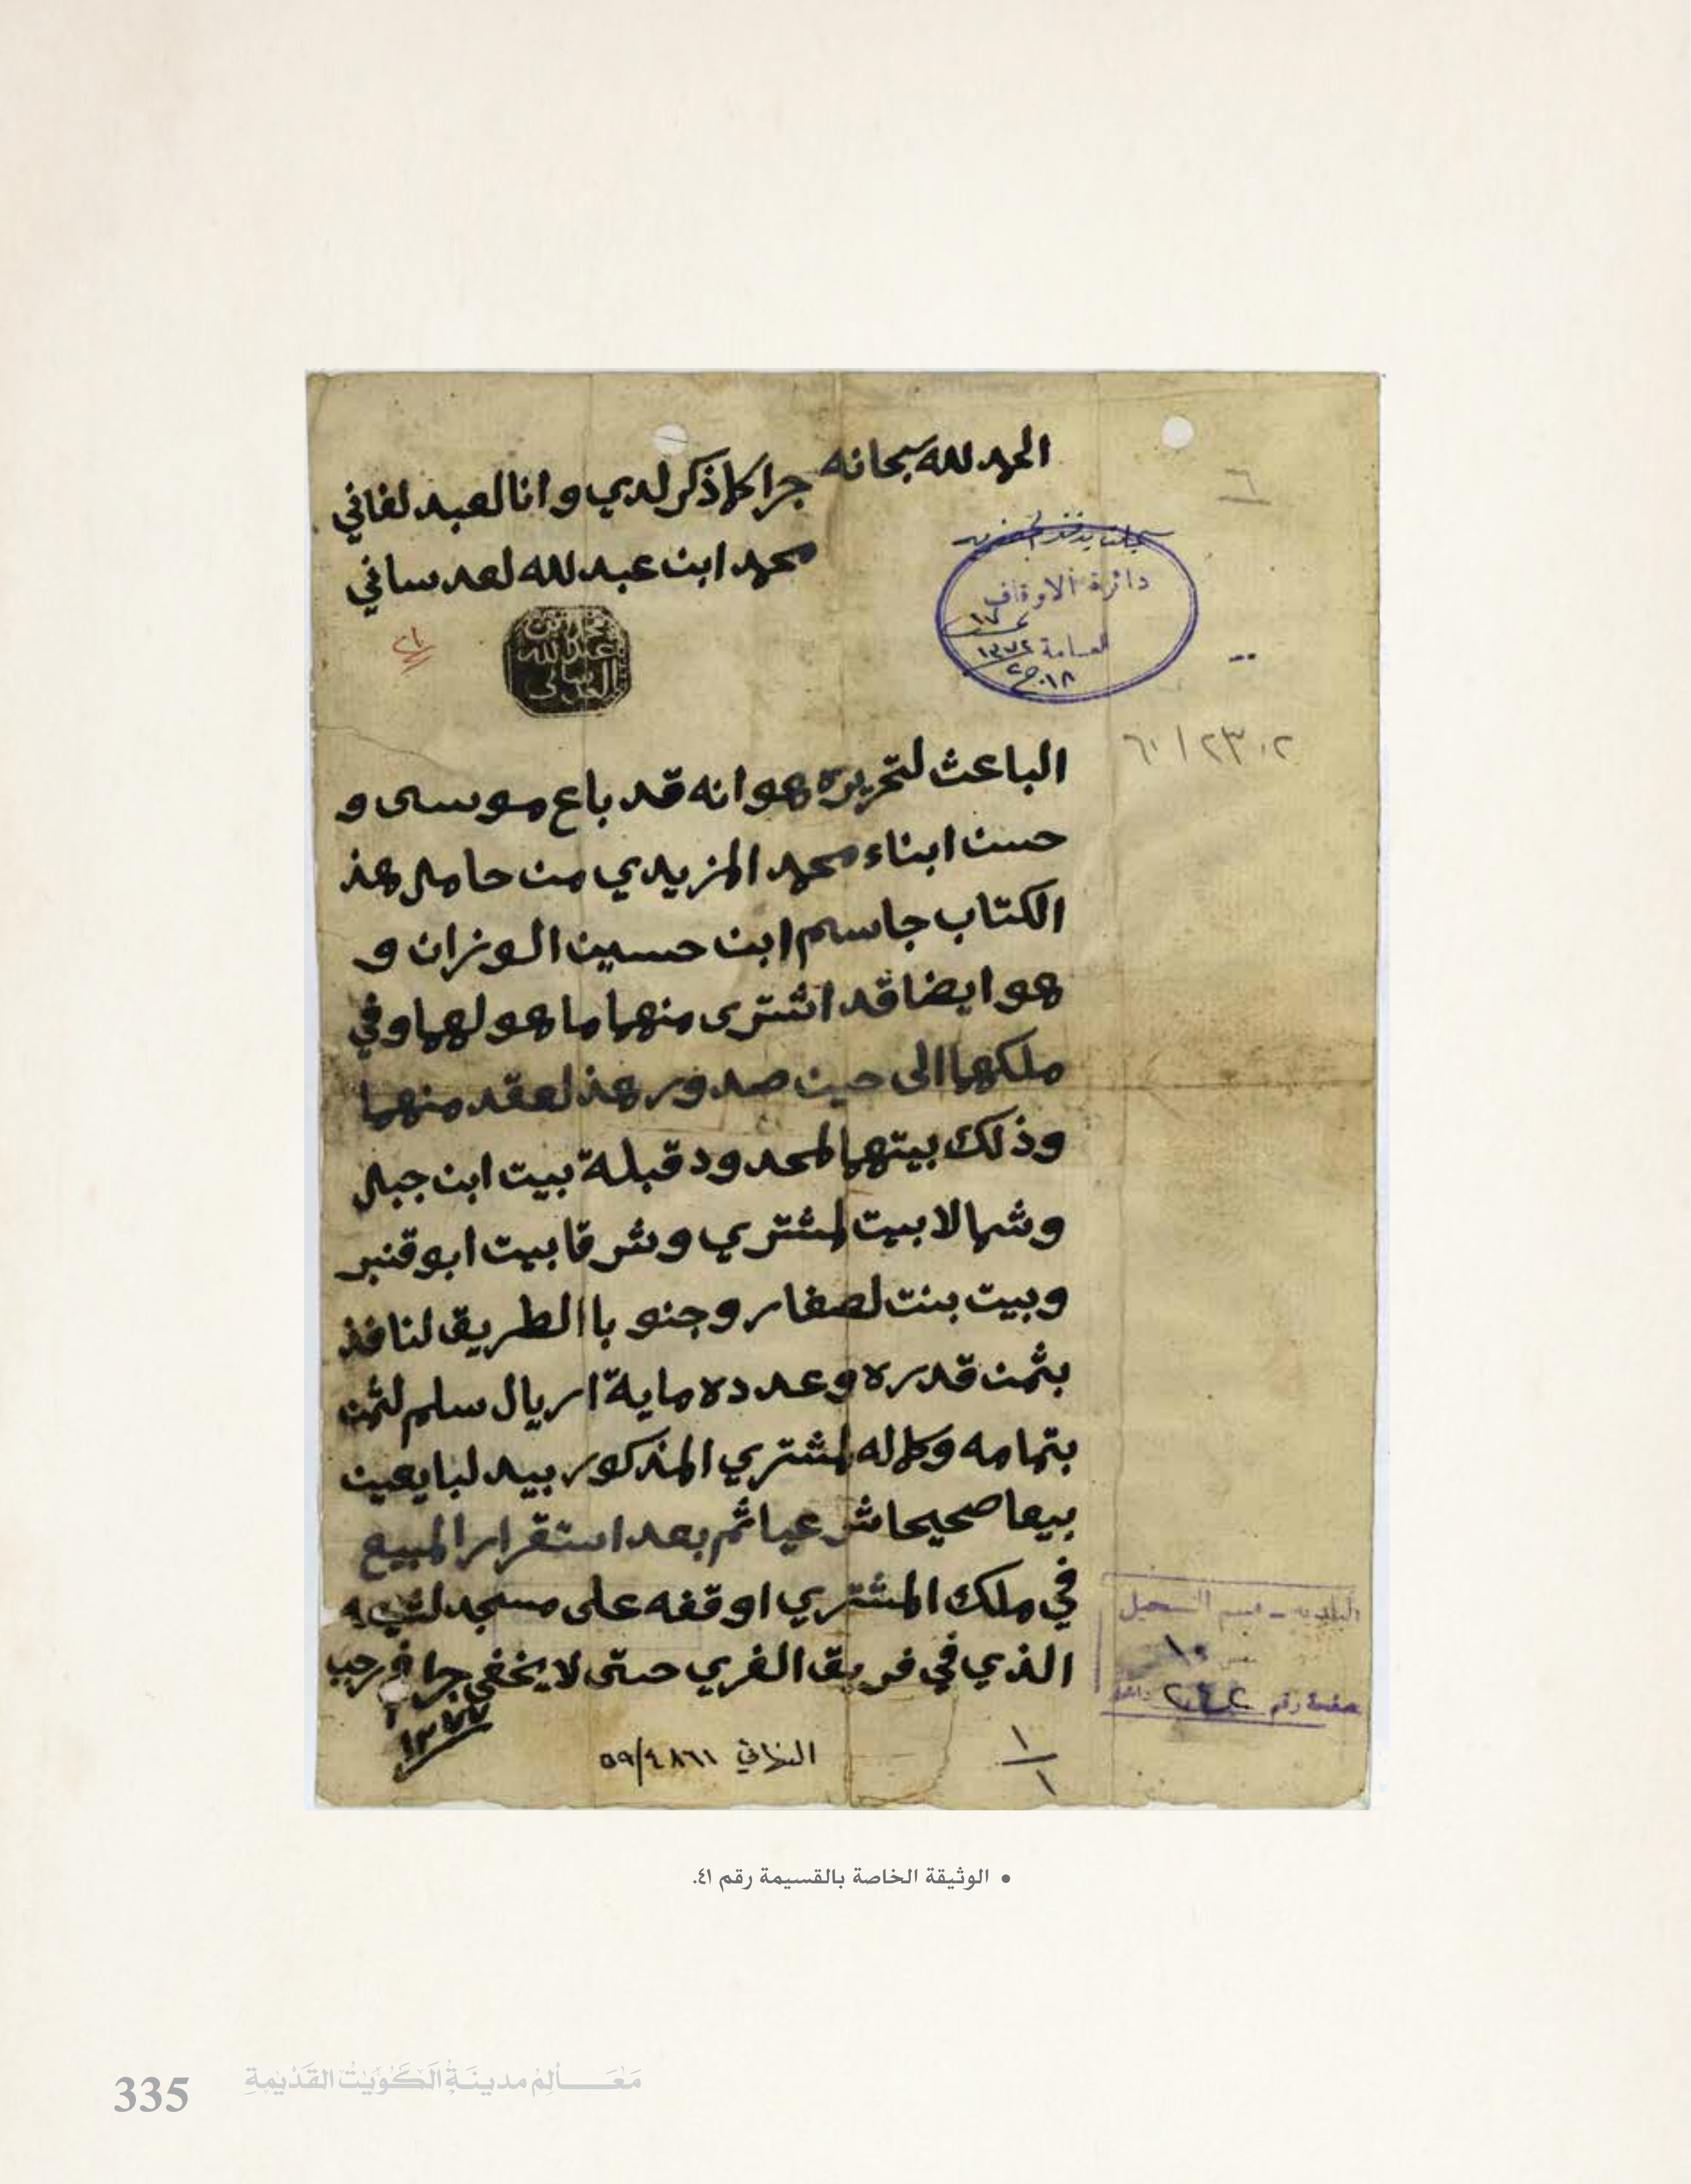 الحمد لله سبحانه
جرا كلما ذكر لدي وانا لعبد لفاني
محمد ابن عبد لله لعدساني
محمد بن
عبد لله
العدساني
دائرة الاوقاف
العامة
١٣٧٢
٦
٦٠١٢٣٠٢
الباعث لتحريره هو انه قد باع موسى و
حسن ابناء محمد المزيدي من حامل هذ
الكتاب جاسم ابن حسين الوزان و
هو ايضا قد اشترى منهما ما هو لهما وفي
ملكهما الى حين صدور هذ لعقد منهما
وذلك بيتهما لمحدود قبلة بيت ابن جبل
وشمالا بيت لمشتري وشرقا بيت ابو قنبر
وبيت بنت لصفار وجنوبا الطريق لنافذ
بثمن قدره وعدده ماية اريال سلم لثمن
بتمامه وكماله لمشتري المذكور بيد لبايعين
بيعا صحيحا شرعيا ثم بعد استقرار المبيع
في ملك المشتري اوقفه على مسجد
الذي في فريق الفري حتى لا يخفى جرا في رجب
البلدية - قسم التسجيل
صفحة رقم
النهائي ٥٩/٤٨٦١
١
١
• الوثيقة الخاصة بالقسيمة رقم ٤١.
335 مَعَالِم مدينَة الكُوَيت القَدْيمة